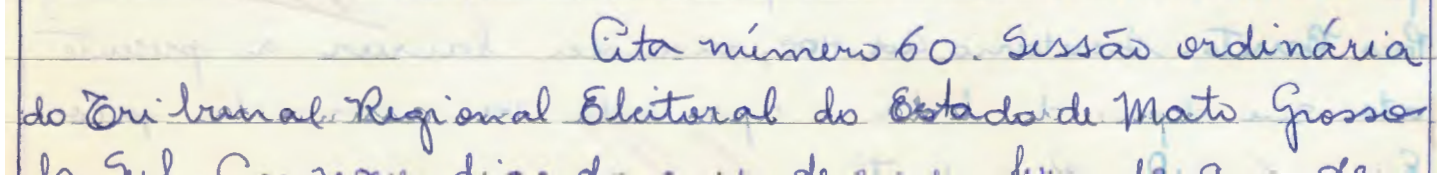 Ata número 60. Sessão ordinária
do Tribunal Regional Eleitoral do Estado de Mato Grosso
do Sul